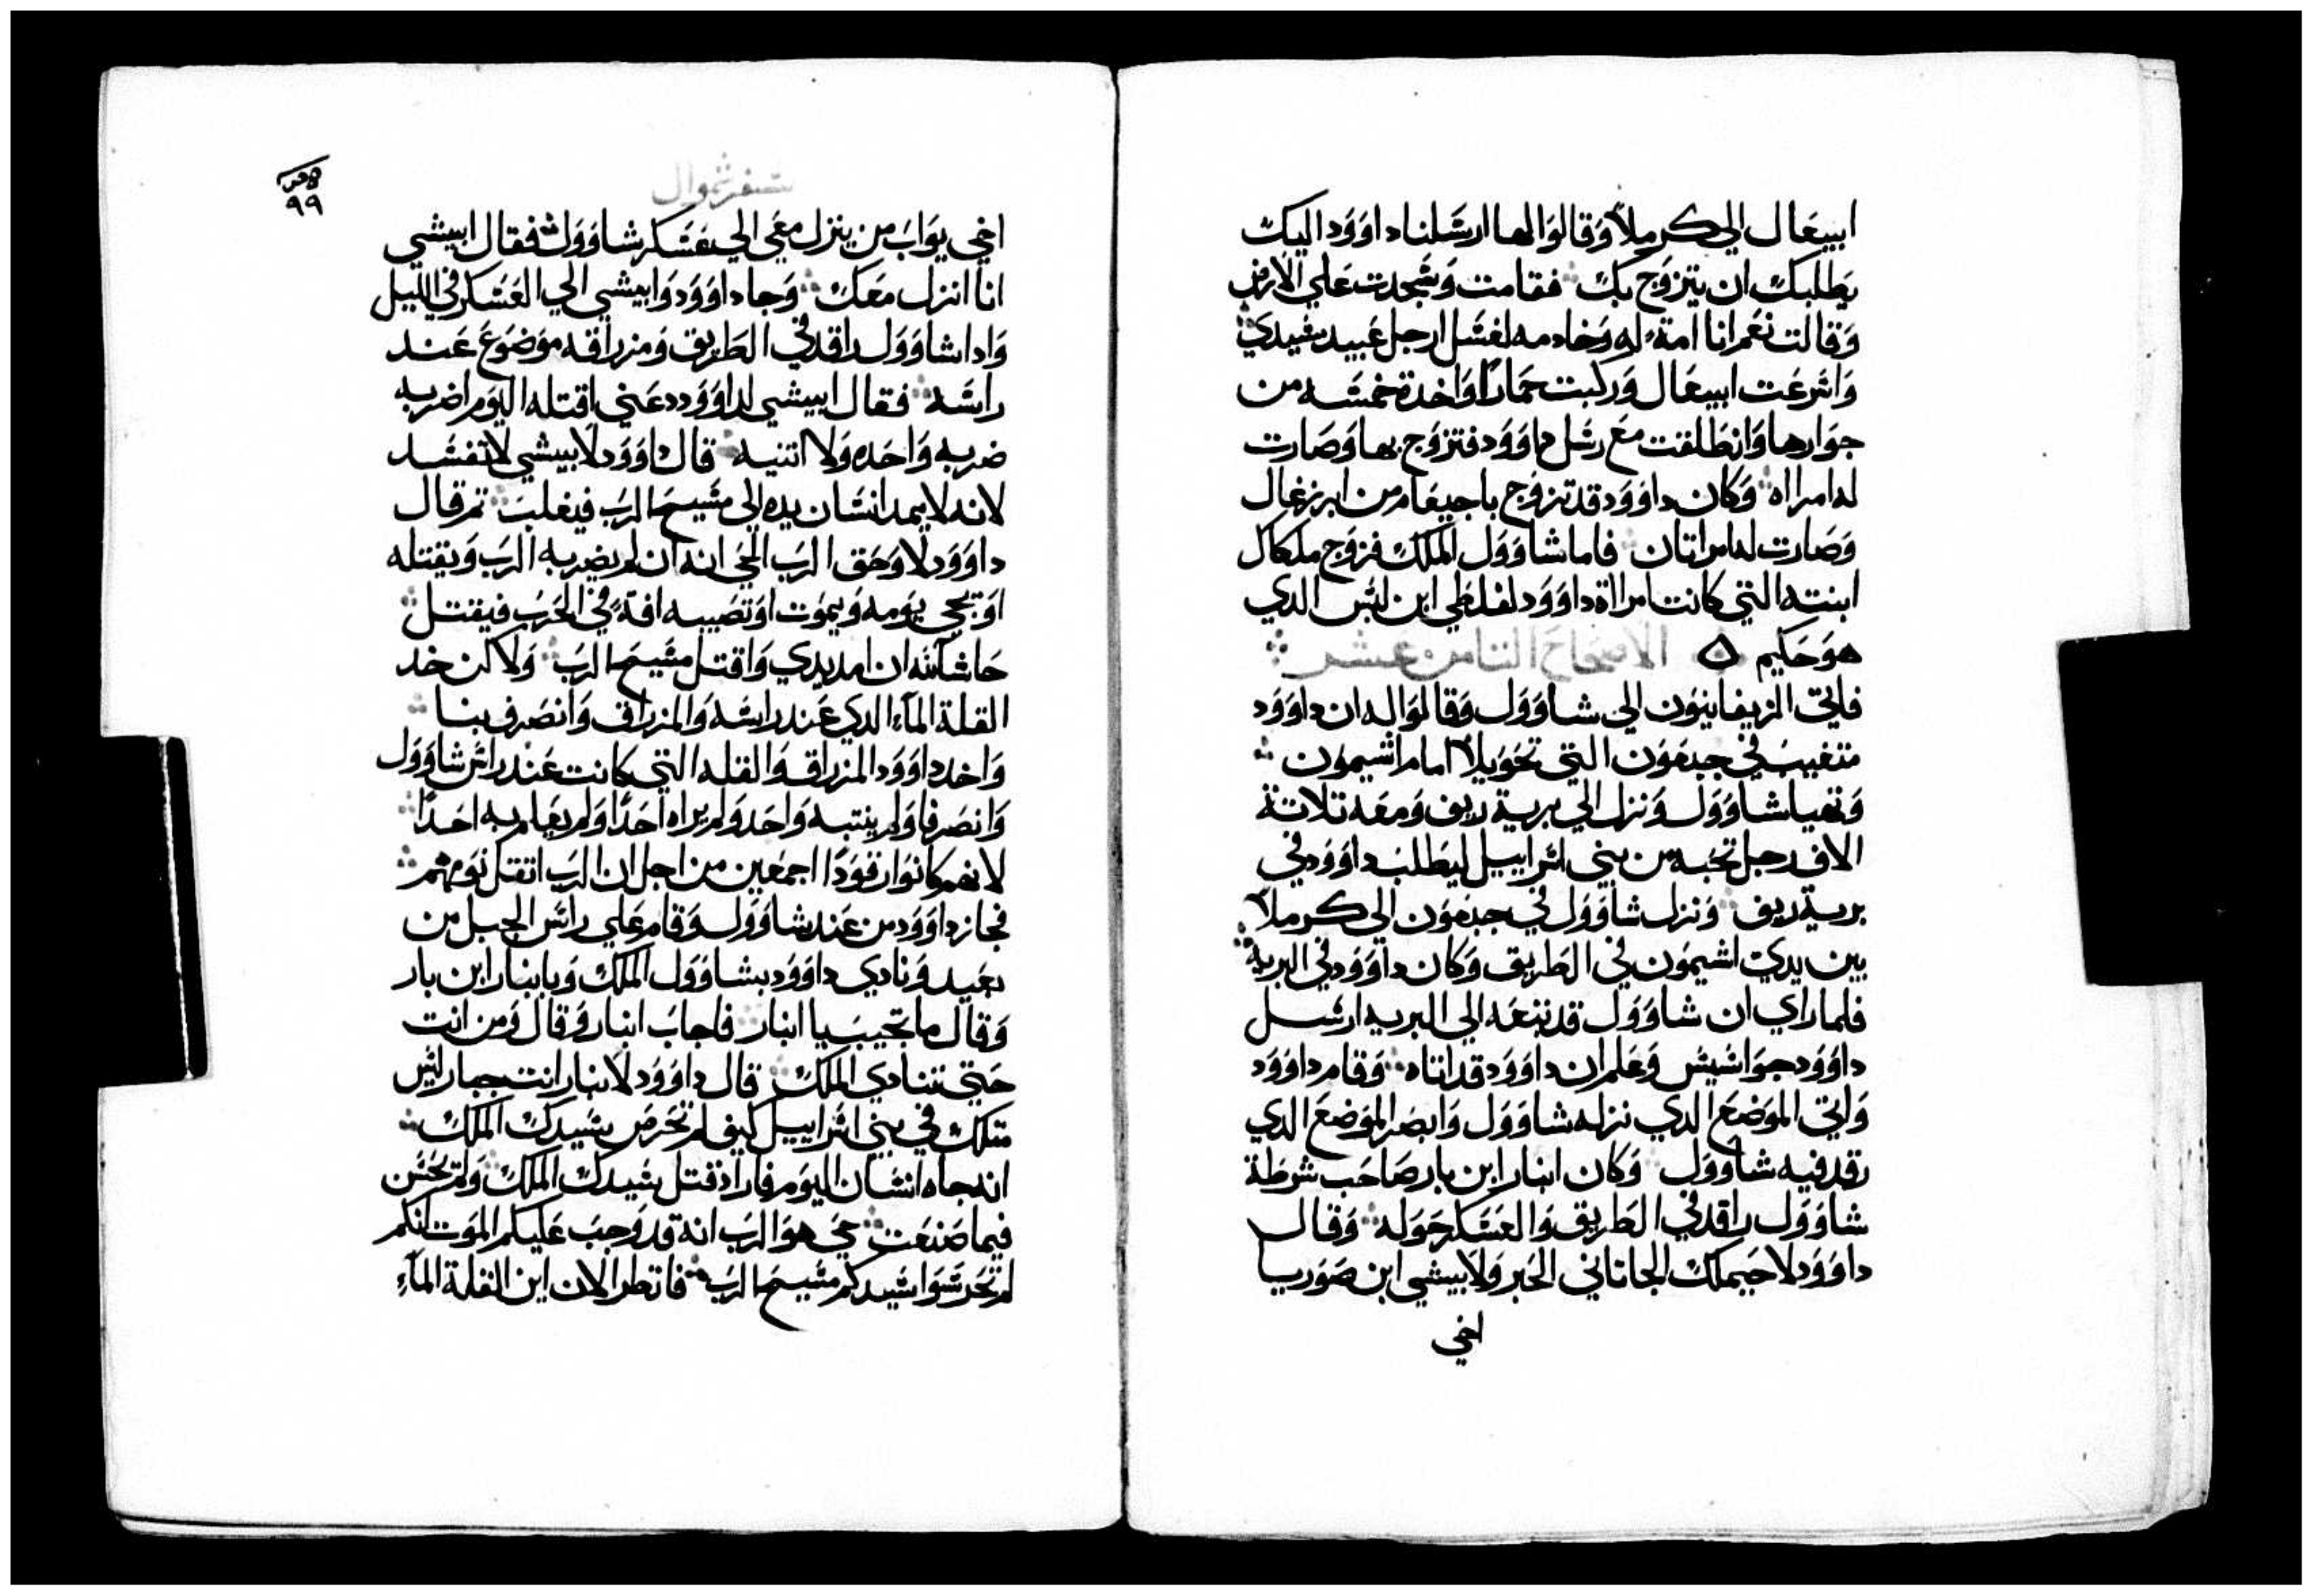 ابيغال الي كرملا وقالوا لها ارسلنا داوود اليك
يطلبك ان يتزوج بك فقامت وسجدت علي الارض
وقالت نعم انا امة له وخادمه لغسل ارجل عبيد سيدي
واسرعت ابيغال وركبت حمارا واخدة خمسه من
جوارها وانطلقت مع رسل داوود فتزوج بها وصارت
له امراه وكان داوود قد تزوج باجيعام من ابرزغال
وصارت له امراتان فاما شاوول الملك فزوج ملكال
ابنته التي كانت امراة داوود لفلطي ابن ليس الدي
هو حكيم ه الاصحاح الثامن عشر
فاتي الزيفانيون الي شاوول وقالوا له ان داوود
متغيب في جبعون التي تحويلا امام اشيمون
وتهيا شاوول ونزل الي برية زيف ومعه تلاتة
الاف رجل نخبه من بني اسراييل ليطلب داوود في
برية زيف ونزل شاوول في جبعون الي كرملا
بين يدي اشيمون في الطريق وكان داوود في البريه
فلما راي ان شاوول قد تبعه الي البريه ارسل
داوود جواسيس وعلم ان داوود قد اتاه وقام داوود
واتي الموضع الدي نزله شاوول وابصر الموضع الدي
رقد فيه شاوول وكان ابنار ابن بار صاحب شرطة
شاوول راقد في الطريق والعسكر حوله وقال
داوود لاحيملك الجاتاني الحبر ولابيشي ابن صوريا
اخي
سفر شموال
٩٩
اخي يواب من ينزل معي الي عسكر شاوول فقال ابيشي
انا انزل معك وجا داوود وابيشي الي العسكر في الليل
وادا شاوول راقد في الطريق ومزراقه موضوع عند
راسه فقال ابيشي لداوود دعني اقتله اليوم اضربه
ضربه واحده ولا اتنيه قال داوود لابيشي لا تفسد
لانه لا يمد انسان يده الي مسيح الرب فيغلب تم قال
داوود لا وحق الرب الحي انه ان لم يضربه الرب ويقتله
او يجي يومه ويموت او تصيبه افة في الحرب فيقتل
حاشا لله ان امد يدي واقتل مسيح الرب ولاكن خد
القلة الماء الدي عند راسه والمزراق وانصرف بنا
واخد داوود المزراق والقله التي كانت عند راس شاوول
وانصرفا ولم ينتبه واحد ولم يراه احدا ولم يعلم به احدا
لانهم كانوا رقودا اجمعين من اجل ان الرب اتقل نومهم
فجاز داوود من عند شاوول وقام علي راس الجبل من
بعيد ونادي داوود بشاوول الملك ويابنار ابن بار
وقال ما تجيب يا ابنار فاجاب ابنار وقال ومن انت
حتي تنادي الملك قال داوود لابنار انت جبار ليس
متلك في بني اسراييل كيف لم تحرص بسيدك الملك
انه جاه انسان اليوم فاراد قتل سيدك الملك ولم تحسن
فيما صنعت حي هو الرب انه قد وجب عليكم الموت لانكم
لم تحرسوا سيدكم مسيح الرب فانظر الان اين القلة الماء